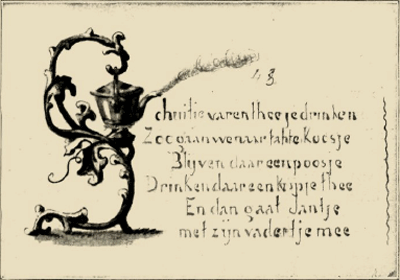 43.
Schuitje varen theetje drinken
Zoo gaan we naar tante Koosje
Blijven daar een poosje
Drinken daar een kopje thee
En dan gaat Jantje
met zijn vadertje mee